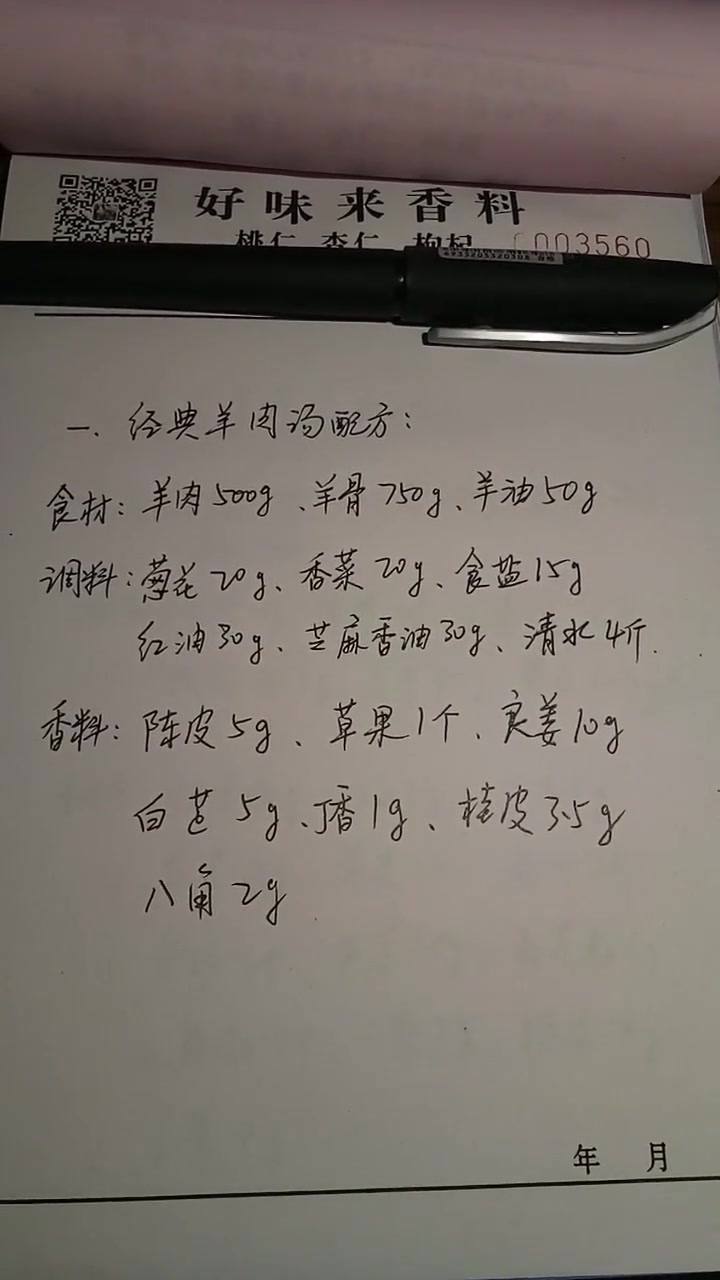 好味来香料
桃仁 杏仁 枸杞 003560
6933205320308
一、经典羊肉汤配方：
食材：羊肉500g、羊骨750g、羊油50g
调料：葱花20g、香菜20g、食盐15g
红油30g、芝麻香油30g、清水4斤.
香料：陈皮5g、草果1个、良姜10g
白芷5g、丁香1g、桂皮3.5g
八角2g
年 月